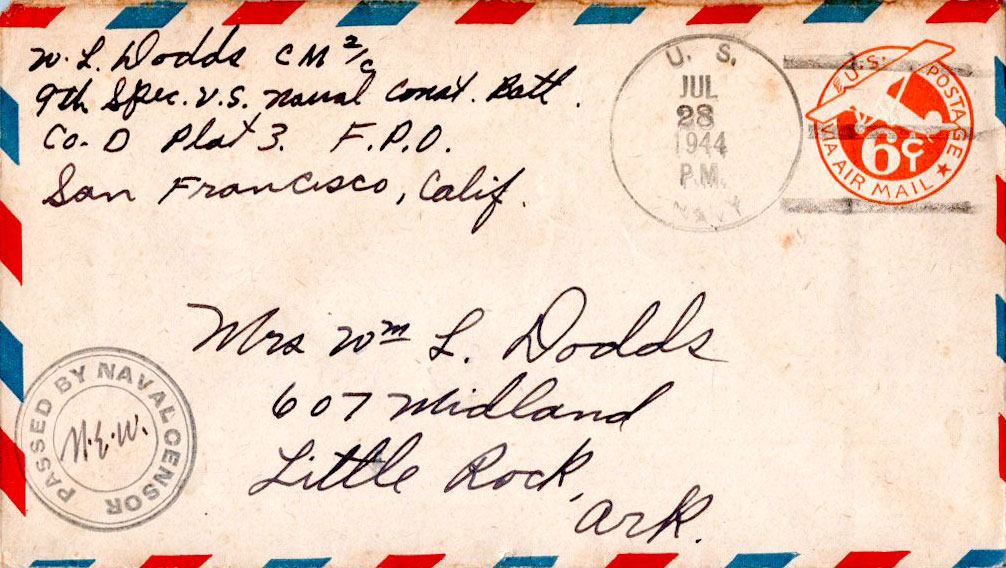 W. L. Dodds CM 2/c
9th Spec. U.S. Naval Const. Batt.
Co. D Plat 3. F.P.O.
San Francisco, Calif.
U. S.
JUL
28
1944
P.M.
NAVY
U.S. POSTAGE
6¢
VIA AIR MAIL
Mrs Wm L. Dodds
607 Midland
Little Rock,
Ark.
PASSED BY NAVAL CENSOR
N.E.W.